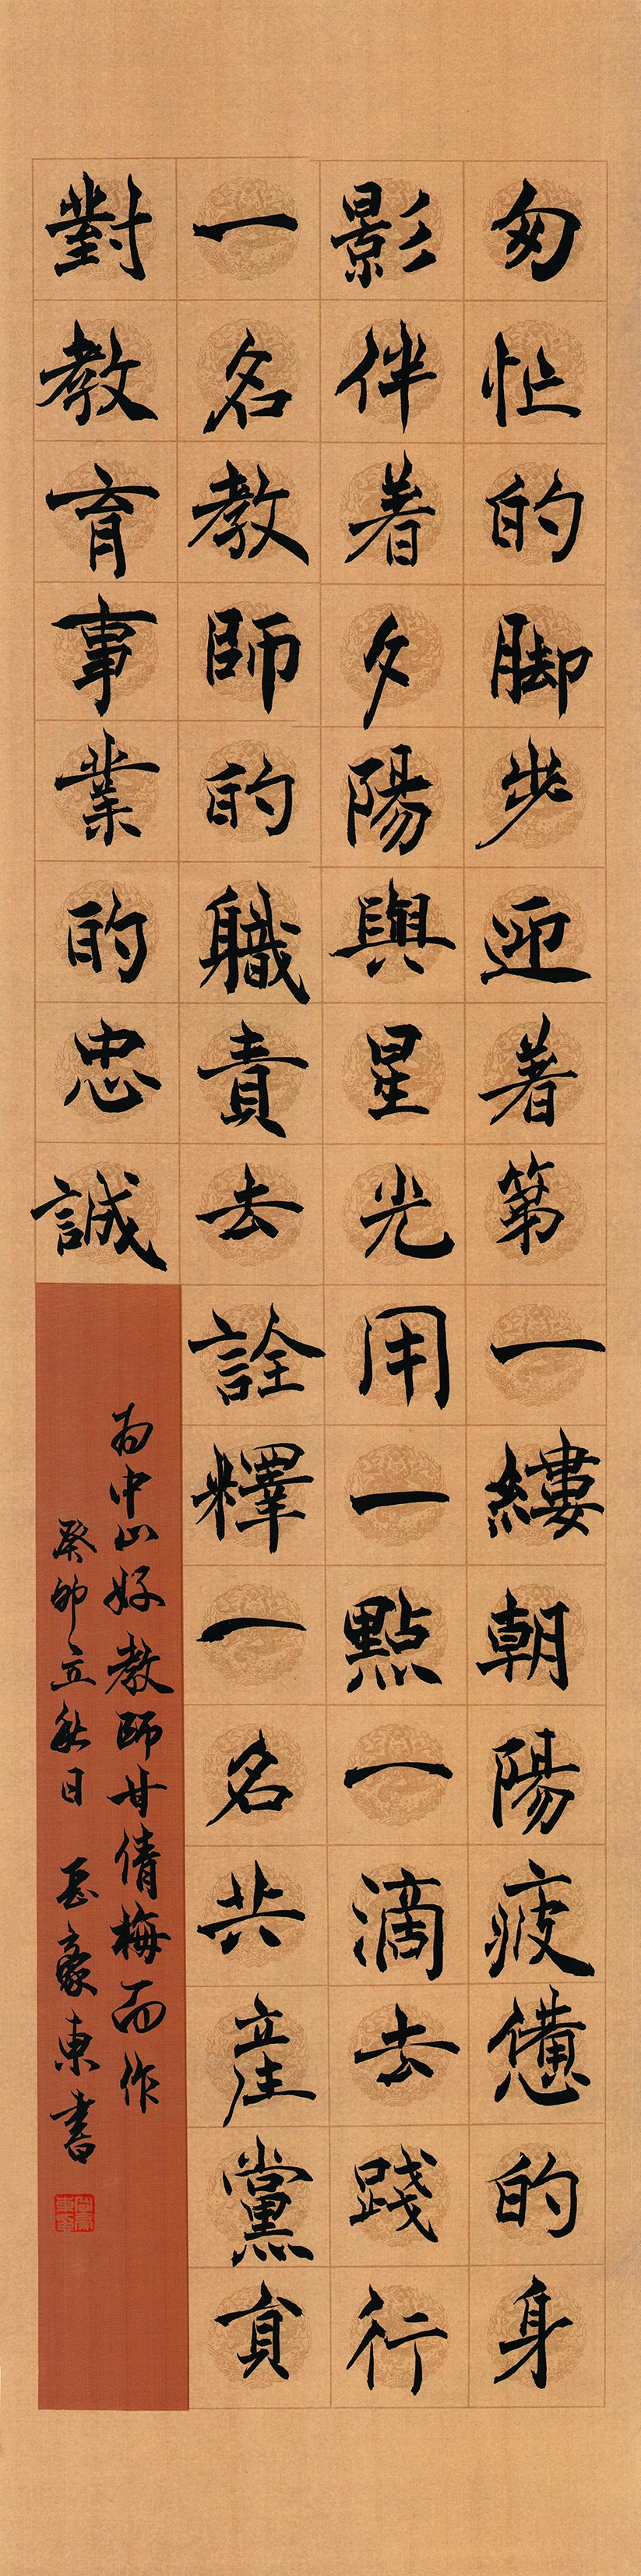 匆忙的脚步迎着第一縷朝陽疲憊的身
影伴着夕陽與星光用一點一滴去踐行
一名教師的職責去詮釋一名共產黨員
對教育事業的忠誠
為中山好教師甘倩梅而作
癸卯立秋日 岳豪東書